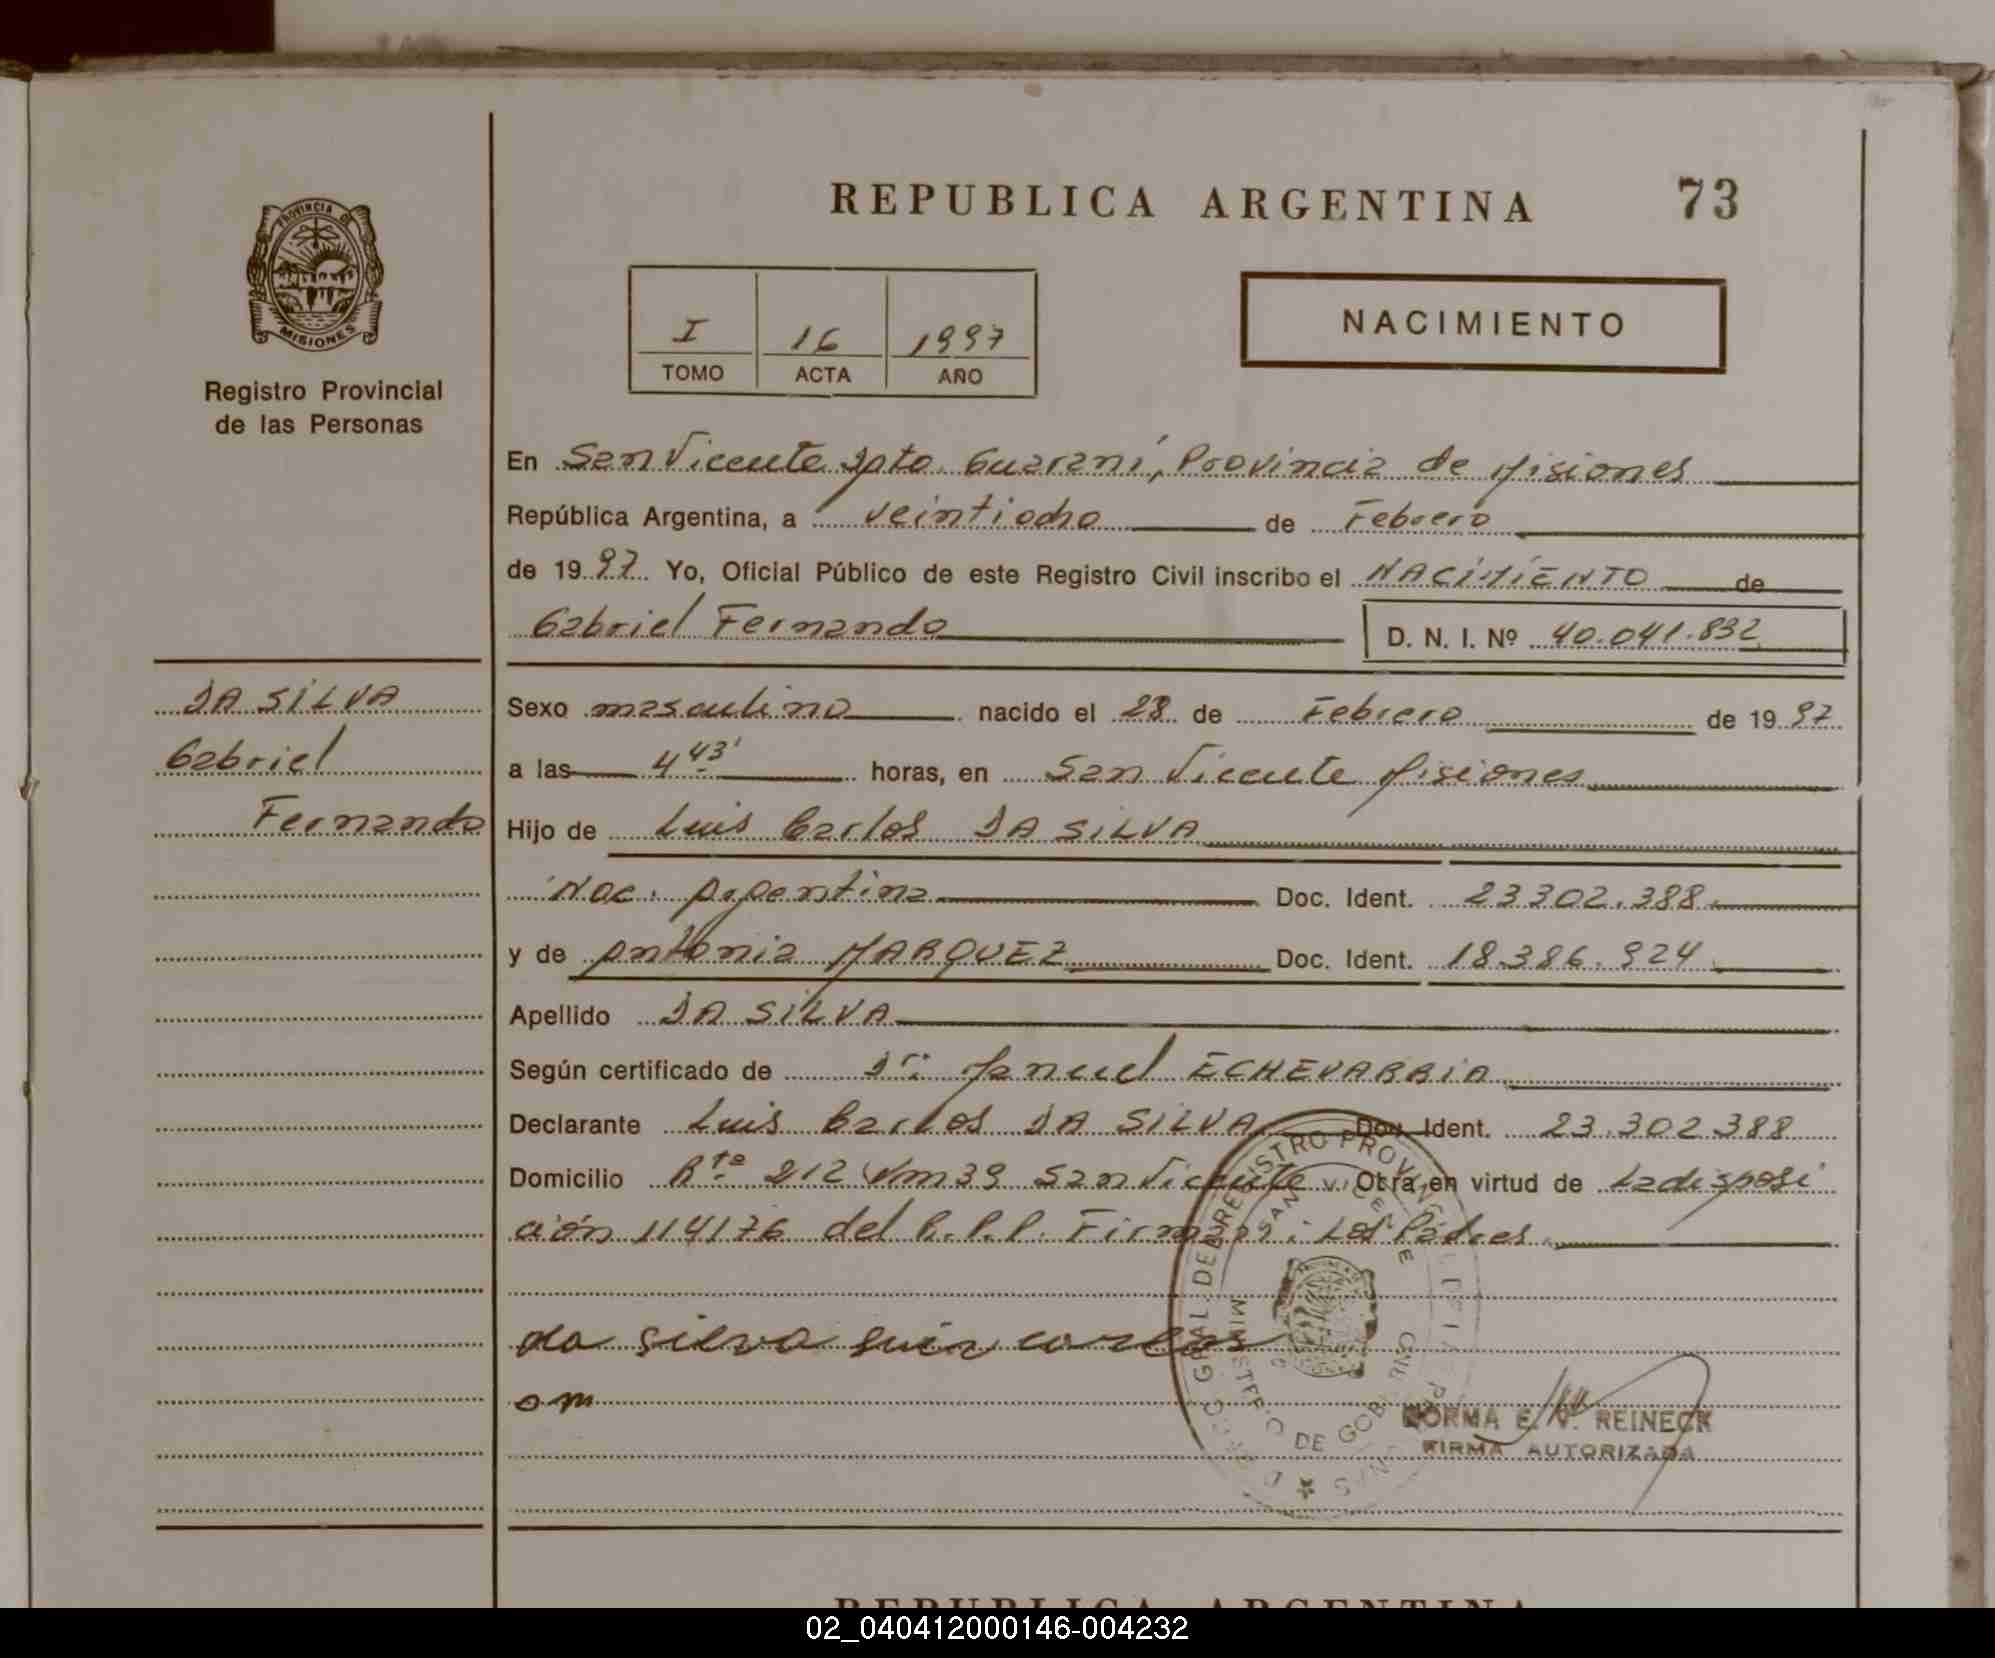 REPUBLICA ARGENTINA 73
PROVINCIA DE
MISIONES
Registro Provincial
de las Personas
I 16 1997
TOMO ACTA AÑO
NACIMIENTO
En San Vicente Dpto. Guaraní, Provincia de Misiones
República Argentina, a veintiocho de Febrero
de 1997. Yo, Oficial Público de este Registro Civil inscribo el NACIMIENTO de
Gabriel Fernando D. N. I. Nº 40.041.832
DA SILVA
Gabriel
Fernando
Sexo masculino nacido el 28 de Febrero de 1997
a las 4 43' horas, en San Vicente Misiones
Hijo de Luis Carlos DA SILVA
Nac: Argentina Doc. Ident. 23302.388.
y de Antonia MARQUEZ Doc. Ident. 18.386.924
Apellido DA SILVA
Según certificado de Dr: Manuel ECHEVARRIA
Declarante Luis Carlos DA SILVA Doc. Ident. 23.302.388
Domicilio Rta 212 Km39 San Vicente Obra en virtud de La disposi
ción 114176 del R.P.P. Firman: Los Padres.
da silva luis carlos
a m
DIRECC. GRAL. DEL REGISTRO PROVINCIAL
SAN VICENTE
MINISTERIO DE GOB.
NORMA E. V. REINECK
FIRMA AUTORIZADA
REPUBLICA ARGENTINA
02_040412000146-004232